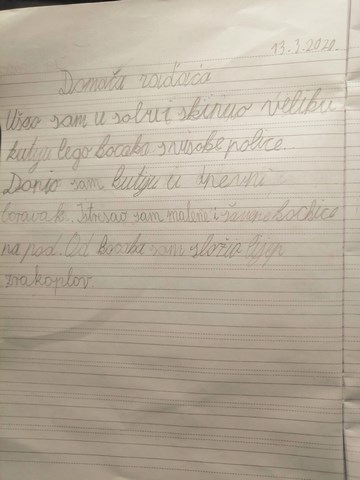 13.3.2020.
Domaća zadaća
Ušao sam u sobu i skinuo veliku
kutiju lego kocaka s visoke police.
Donio sam kutiju u dnevni
boravak. Istresao sam malene i šarene kockice
na pod. Od kocaka sam složio lijep
zrakoplov